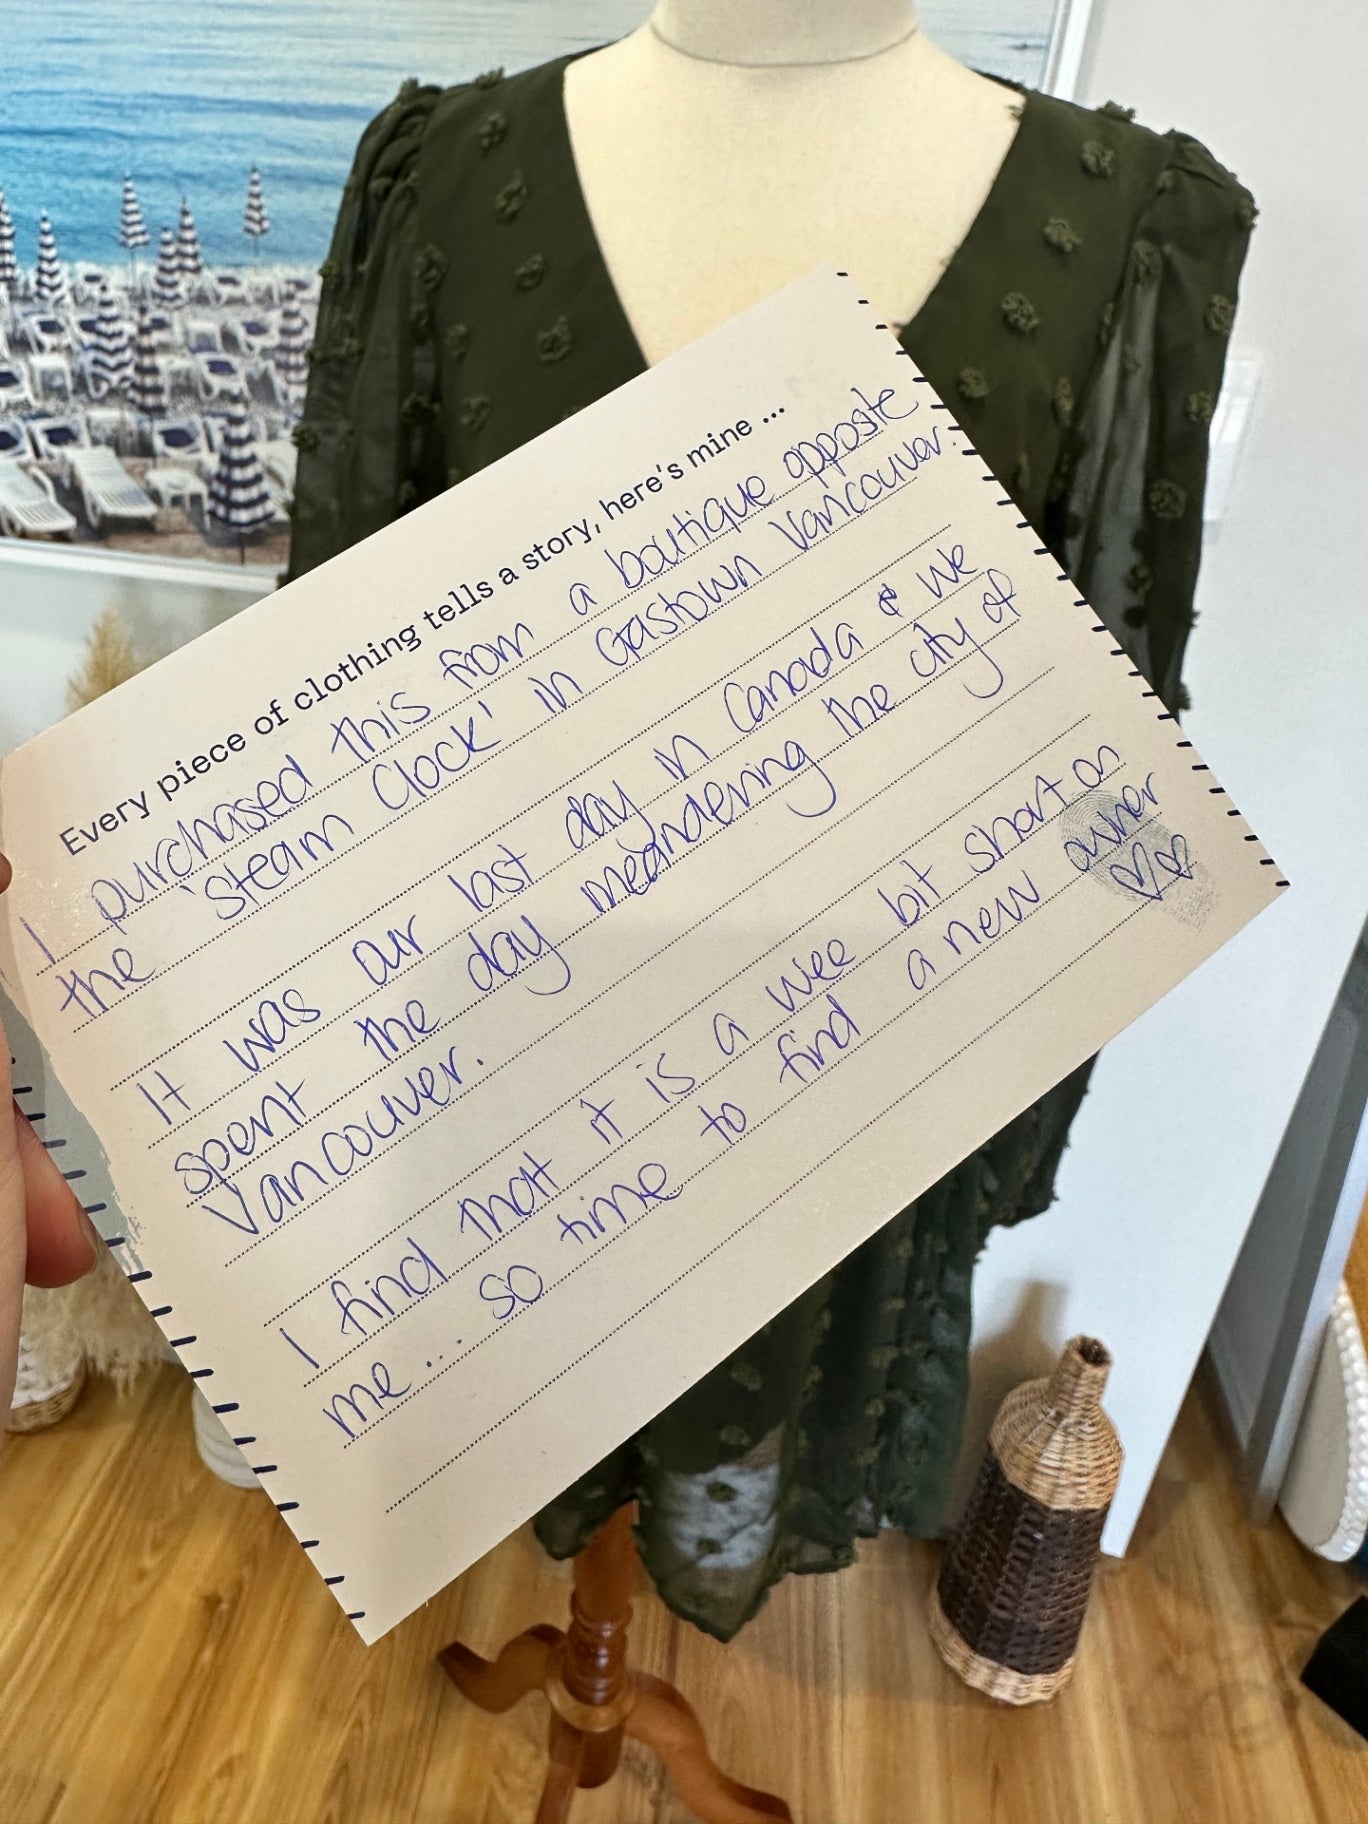 Every piece of clothing tells a story, here's mine ...
I purchased this from a boutique opposite
the 'steam Clock' in Gastown Vancouver.
It was our last day in Canada & we
spent the day meandering the city of
Vancouver.
I find that it is a wee bit short on
me... so time to find a new owner
♡♡